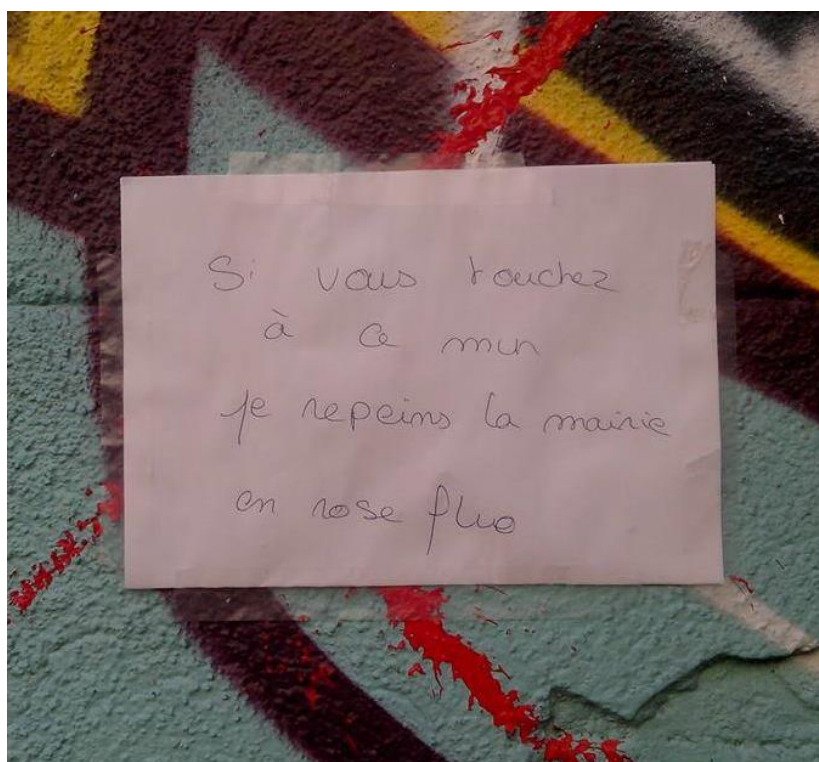 Si vous touchez
à ce mur
je repeins la mairie
en rose fluo